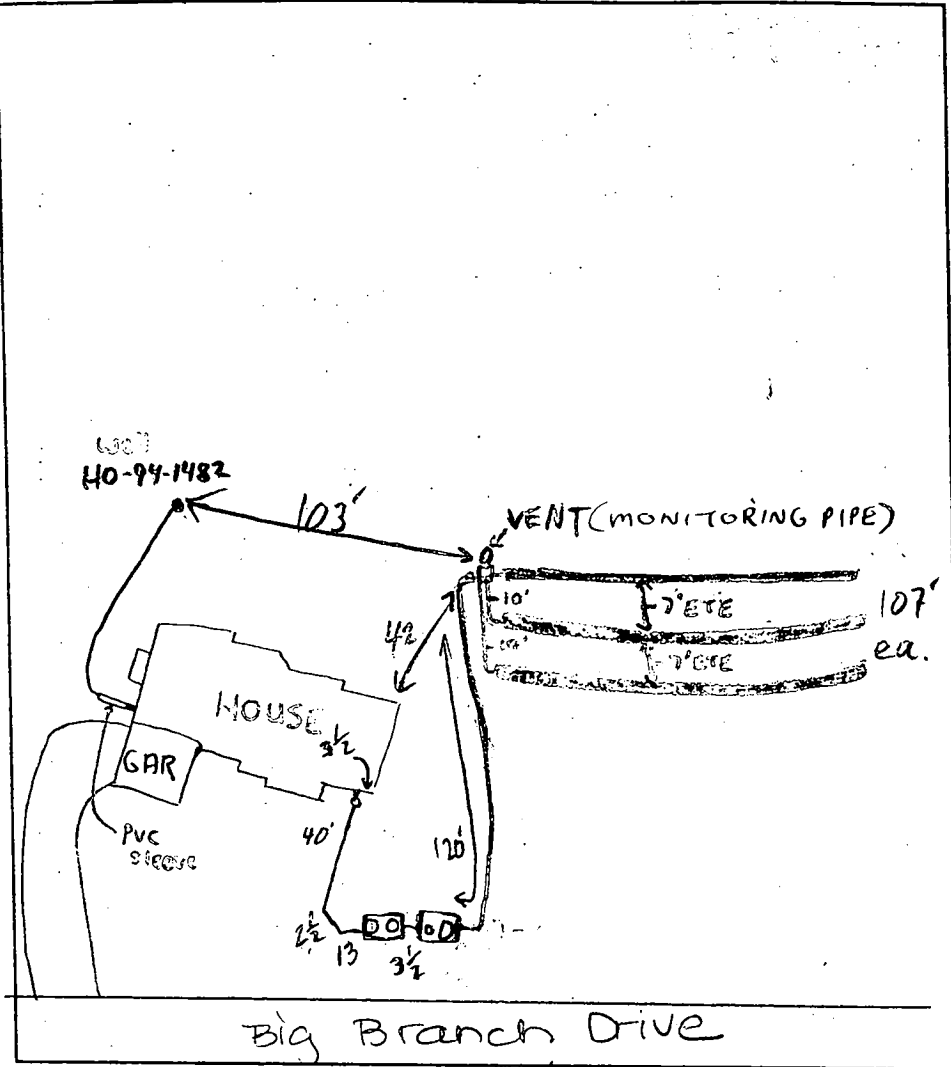 Well
HO-94-1482
103'
VENT (MONITORING PIPE)
10'
7' ETE
107'
ea.
42
10'
7' ETE
HOUSE
3 1/2
GAR
PVC
SLEEVE
40'
120'
2 1/2
13
3 1/2
Big Branch Drive